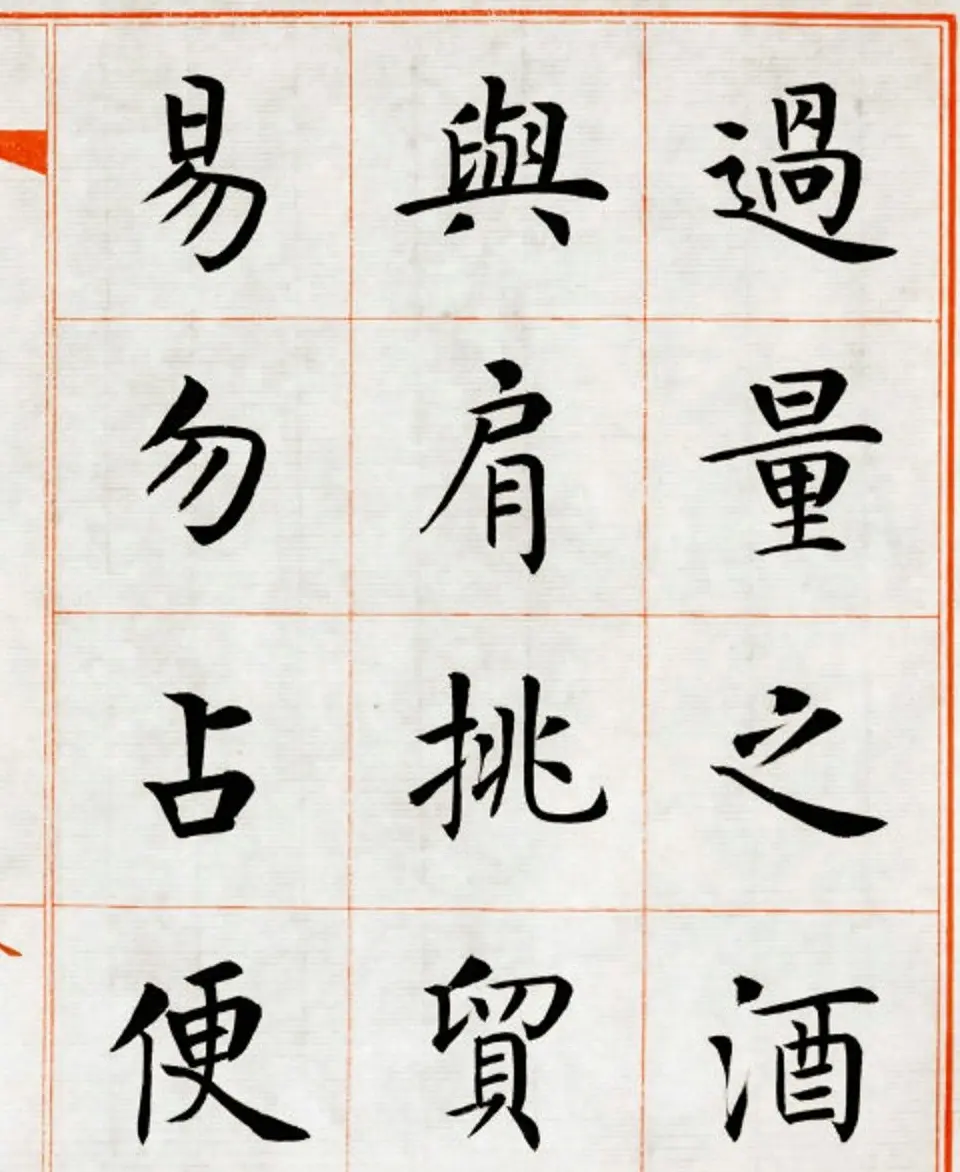 過量之酒
與肩挑貿
易勿占便